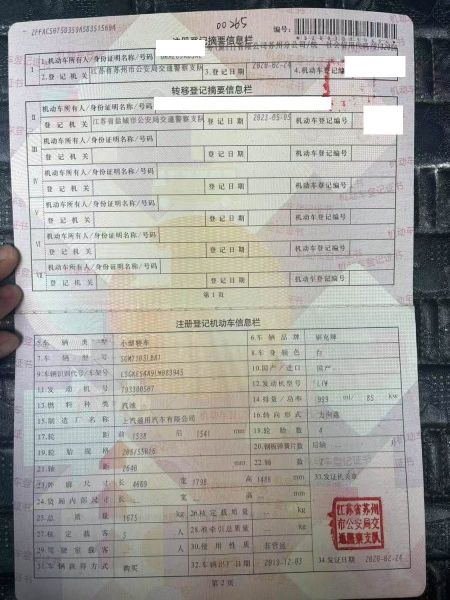 00265
注册登记摘要信息栏
编号:
1.机动车所有人/身份证明名称/号码
2.登记机关 江苏省苏州市公安局交通警察支队 3.登记日期 2020-02-24 4.机动车登记编号
转移登记摘要信息栏
II 机动车所有人/身份证明名称/号码
登记机关 江苏省盐城市公安局交通警察支队 登记日期 2021-05-05 机动车登记编号
III 机动车所有人/身份证明名称/号码
登记机关 登记日期 机动车登记编号
IV 机动车所有人/身份证明名称/号码
登记机关 登记日期 机动车登记编号
V 机动车所有人/身份证明名称/号码
登记机关 登记日期 机动车登记编号
VI 机动车所有人/身份证明名称/号码
登记机关 登记日期 机动车登记编号
VII 机动车所有人/身份证明名称/号码
登记机关 登记日期 机动车登记编号
第1页
注册登记机动车信息栏
5.车辆类型 小型轿车 6.车辆品牌 别克牌
7.车辆型号 8.车身颜色 白
9.车辆识别代号/车架号 10.国产/进口 国产
11.发动机号 193300507 12.发动机型号
13.燃料种类 汽油 14.排量/功率 999 ml/ 85 kw
15.制造厂名称 上汽通用汽车有限公司 16.转向形式 方向盘
17.轮距 前 1538 后 1541 mm 18.轮胎数 4
19.轮胎规格 205/55R16 20.钢板弹簧片数 后轴
21.轴距 2640 mm 22.轴数 2
23.外廓尺寸 长 4609 宽 1798 高 1486 mm 33.发证机关章
24.货厢内部尺寸 长 宽 高 mm
25.总质量 1675 kg 26.核定载质量 kg
27.核定载客 5 人 28.准牵引总质量 kg
29.驾驶室载客 人 30.使用性质 非营运
江苏省苏州
市公安局交
通警察支队
31.车辆获得方式 购买 32.车辆出厂日期 2019-12-03 34.发证日期 2020-02-24
第2页